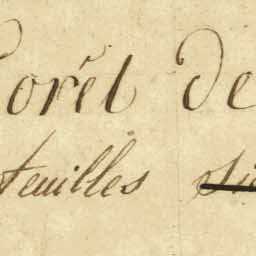 Forêt de
feuilles